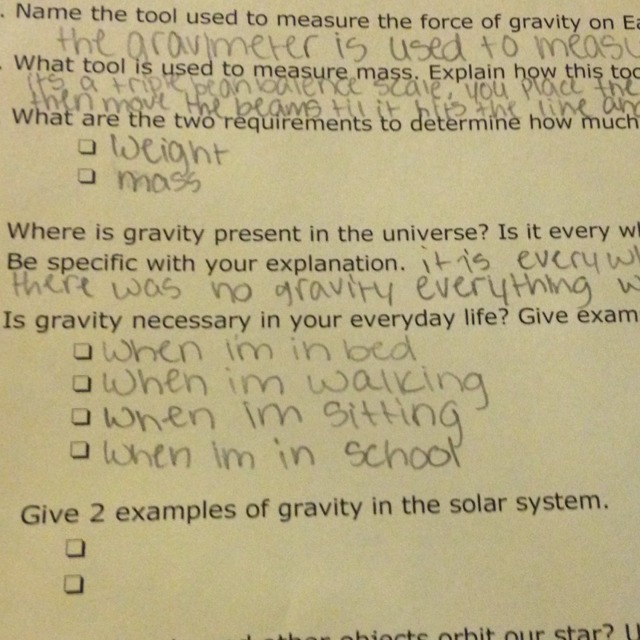 . Name the tool used to measure the force of gravity on Ea
the gravimeter is used to measu
. What tool is used to measure mass. Explain how this too
its a triple bean balence scale, you place the
then move the beams til it hits the line an
What are the two requirements to determine how much
❏ weight
❏ mass
Where is gravity present in the universe? Is it every wh
Be specific with your explanation. it is everywh
there was no gravity everything w
Is gravity necessary in your everyday life? Give exam
❏ when im in bed
❏ when im walking
❏ when im sitting
❏ when im in school
Give 2 examples of gravity in the solar system.
❏
❏
other objects orbit our star? U